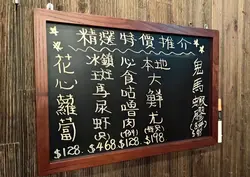 精選特價推介
鬼馬蝦膠
本地大鮮尤
(每只)
$198
必食咕嚕肉
(例)
$128
冰鎮斑馬尿虾
(只)
$468
花心蘿蔔
$128.